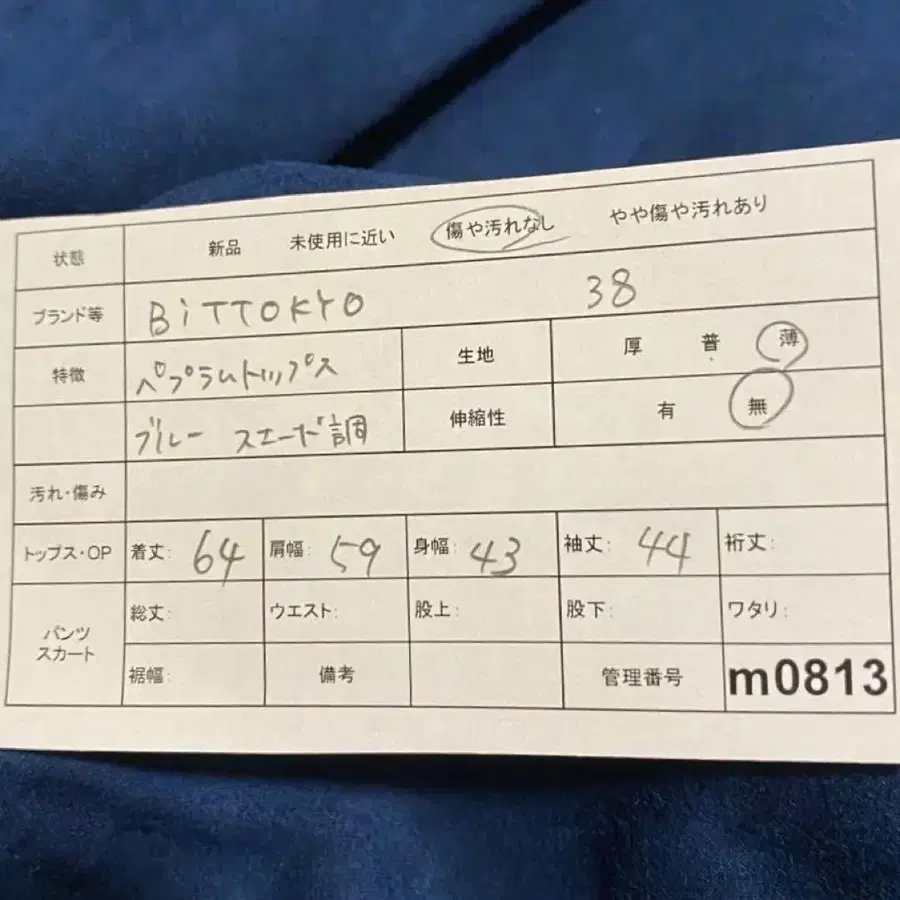 状態 新品 未使用に近い 傷や汚れなし やや傷や汚れあり
ブランド等 BiTTOKYO 38
特徴 ペプラムトップス 生地 厚 普 薄
ブルー スエード調 伸縮性 有 無
汚れ・傷み
トップス・OP 着丈: 64 肩幅: 59 身幅: 43 袖丈: 44 裄丈:
パンツ スカート 総丈: ウエスト: 股上: 股下: ワタリ:
裾幅: 備考 管理番号 m0813